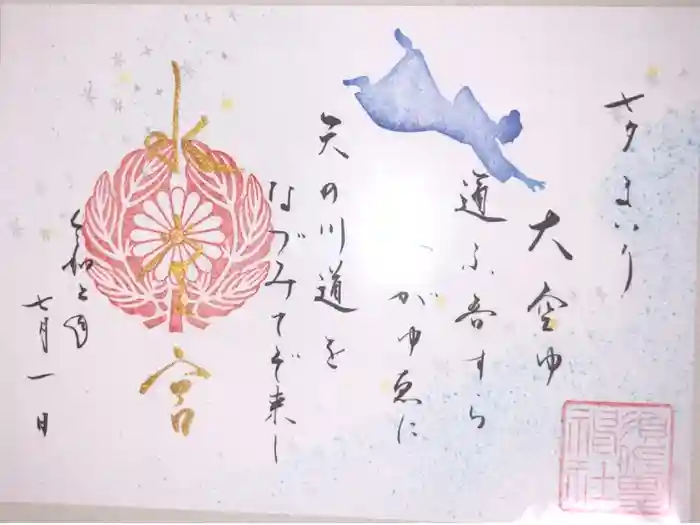 七夕まいり
大空ゆ
通ふ吾すら
がゆゑに
天の川道を
なづみてぞ来し
令和二年
七月一日
神社